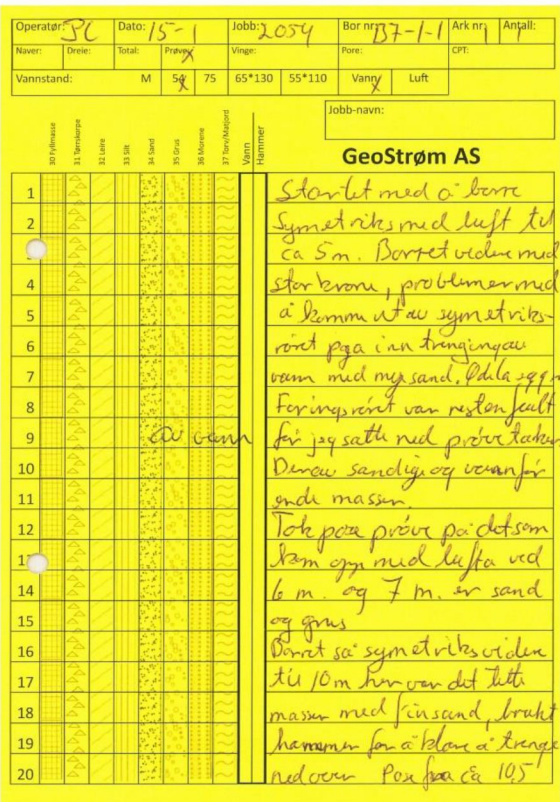 Operatør: PC Dato: 15-1 Jobb: 2054 Bor nr: B7-1-1 Ark nr: 1 Antall: 1
Naver: Dreie: Total: Prøve: X Vinge: Pore: CPT:
Vannstand: M 54 X 75 65*130 55*110 Vann X Luft
Jobb-navn:
30 Fyllmasse 31 Tørrskorpe 32 Leire 33 Silt 34 Sand 35 Grus 36 Morene 37 Torv/Matjord Vann Hammer
GeoStrøm AS
1 Startet med å borre
2 Symetriks med luft til
ca 5 m. Borret videre med
4 stor krone, problemer med
5 å komme ut av symetriks-
6 røret pga inntrenging av
7 vann med mye sand.
8 Foringsrøret var nesten fullt
9 av vann før jeg satte ned prøvetaker
10 Derav sandige og vannfør
11 ende masser.
12 Tok pose prøve på det som
13 kom opp med lufta ved
14 6 m. og 7 m. er sand
15 og grus
16 Borret så symetriks videre
17 til 10 m her var det tette
18 masser med finsand, brukt
19 hammer for å klare å trenge
20 nedover Pose fra ca 10,5